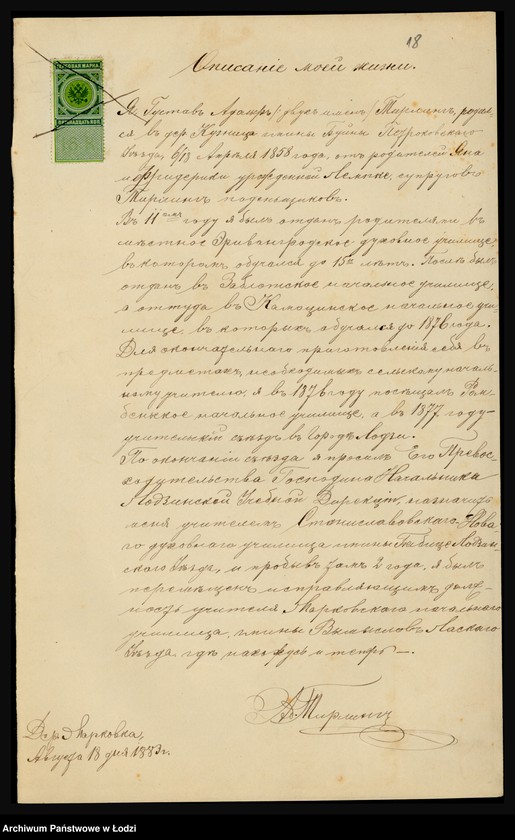 18
ГЕРБОВАЯ МАРКА
Описаніе моей жизни.
Я, Густавъ Адольфъ /двухъ именъ/ Тирлингъ, родил-
ся въ дер. Кузница гмины Петроковскаго
Уѣзда, 6/18 Апрѣля 1858 года, отъ родителей Яна
и Фридерики урожденной Лемпке, супруговъ
Тирлингъ поденьщиковъ.
Въ 11 году я былъ отданъ родителями въ
мѣстное духовное училище,
въ которомъ обучался до 15 лѣтъ. Послѣ былъ
отданъ въ начальное училище,
а оттуда въ Камоцинское начальное учи-
лище, въ которыхъ обучался до 1876 года.
Для окончательнаго приготовленія себя въ
предметахъ, необходимыхъ сельскому началь-
ному учителю, я въ 1876 году посѣщалъ Рем-
начальное училище, а въ 1877 году-
учительскій съѣздъ въ городѣ Лодзи.
По окончаніи съѣзда я просилъ Его Превос-
ходительства Господина Начальника
Лодзинской Учебной Дирекціи, назначить
меня учителемъ Станиславовскаго-Нова-
го духовнаго училища гмины Лодзин-
скаго Уѣзда, и пробывъ тамъ 2 года, я былъ
перемѣщенъ исправляющимъ долж-
ность учителя Марковскаго начальнаго
училища, гмины Ласкаго
Уѣзда, гдѣ нахожусь и теперь.
А. Тирлингъ
Дер. Марковка,
Августа 18 дня 1883 г.
Archiwum Państwowe w Łodzi